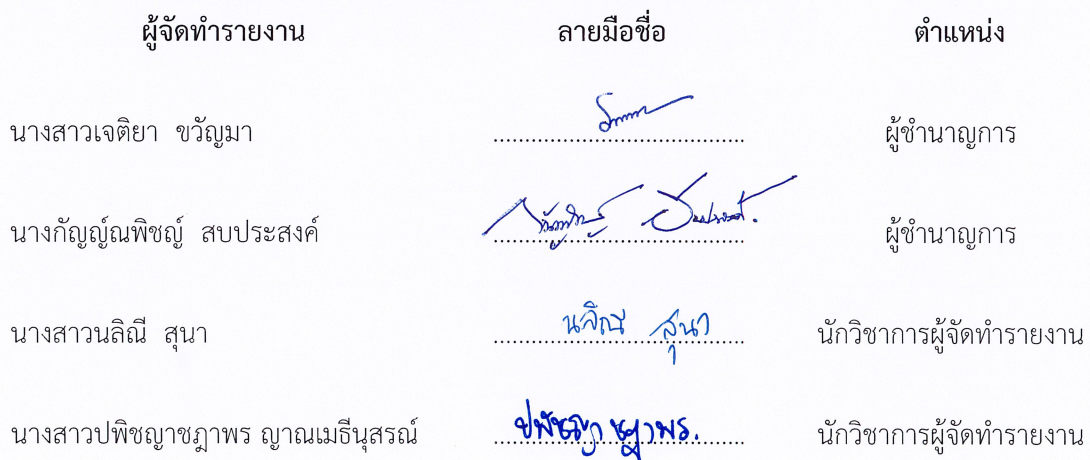 ผู้จัดทำรายงาน ลายมือชื่อ ตำแหน่ง
นางสาวเจติยา ขวัญมา ........................................ ผู้ชำนาญการ
นางกัญญ์ณพิชญ์ สบประสงค์ ........................................ ผู้ชำนาญการ
นางสาวนลิณี สุนา นลิณี สุนา ........................................ นักวิชาการผู้จัดทำรายงาน
นางสาวปพิชญาชฎาพร ญาณเมธีนุสรณ์ ปพิชญาชฎาพร. ........................................ นักวิชาการผู้จัดทำรายงาน